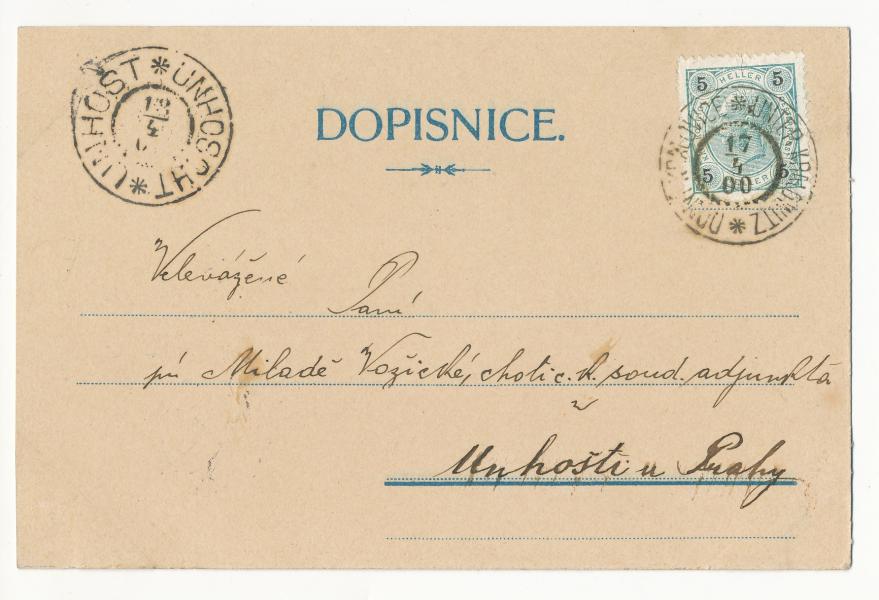 UNHOST * UNHOSCHT *
18
4
DOPISNICE.
5 HELLER 5
17
4
00
5 5
Velevážené
Paní
pí Miladě Vožické, choti c. k. soud. adjunkta
v
Unhošti u Prahy